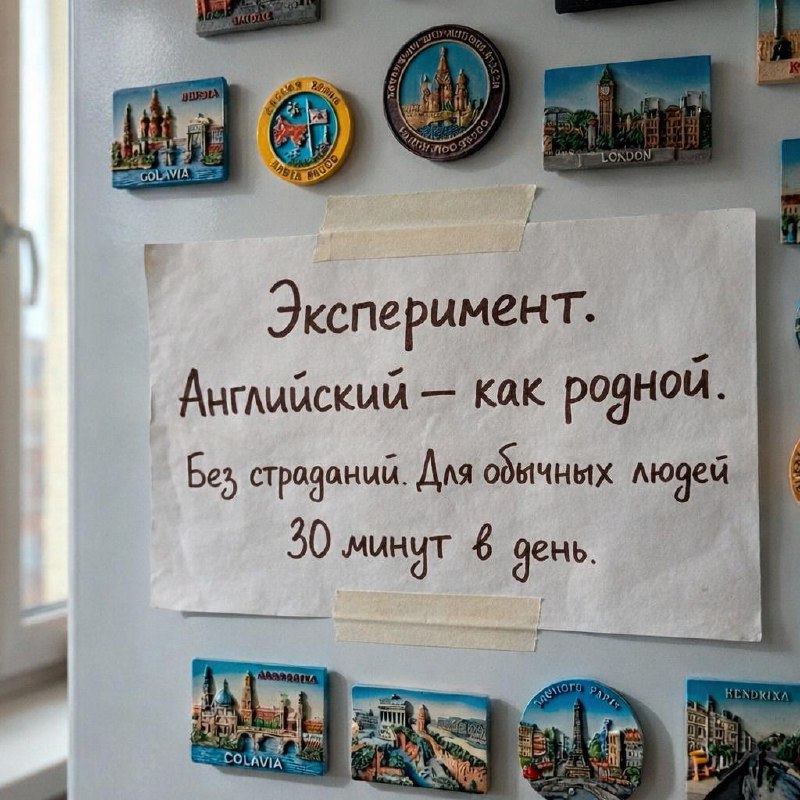 GOLAVIA
LONDON
Эксперимент.
Английский — как родной.
Без страданий. Для обычных людей
30 минут в день.
COLAVIA
KENDRIXA